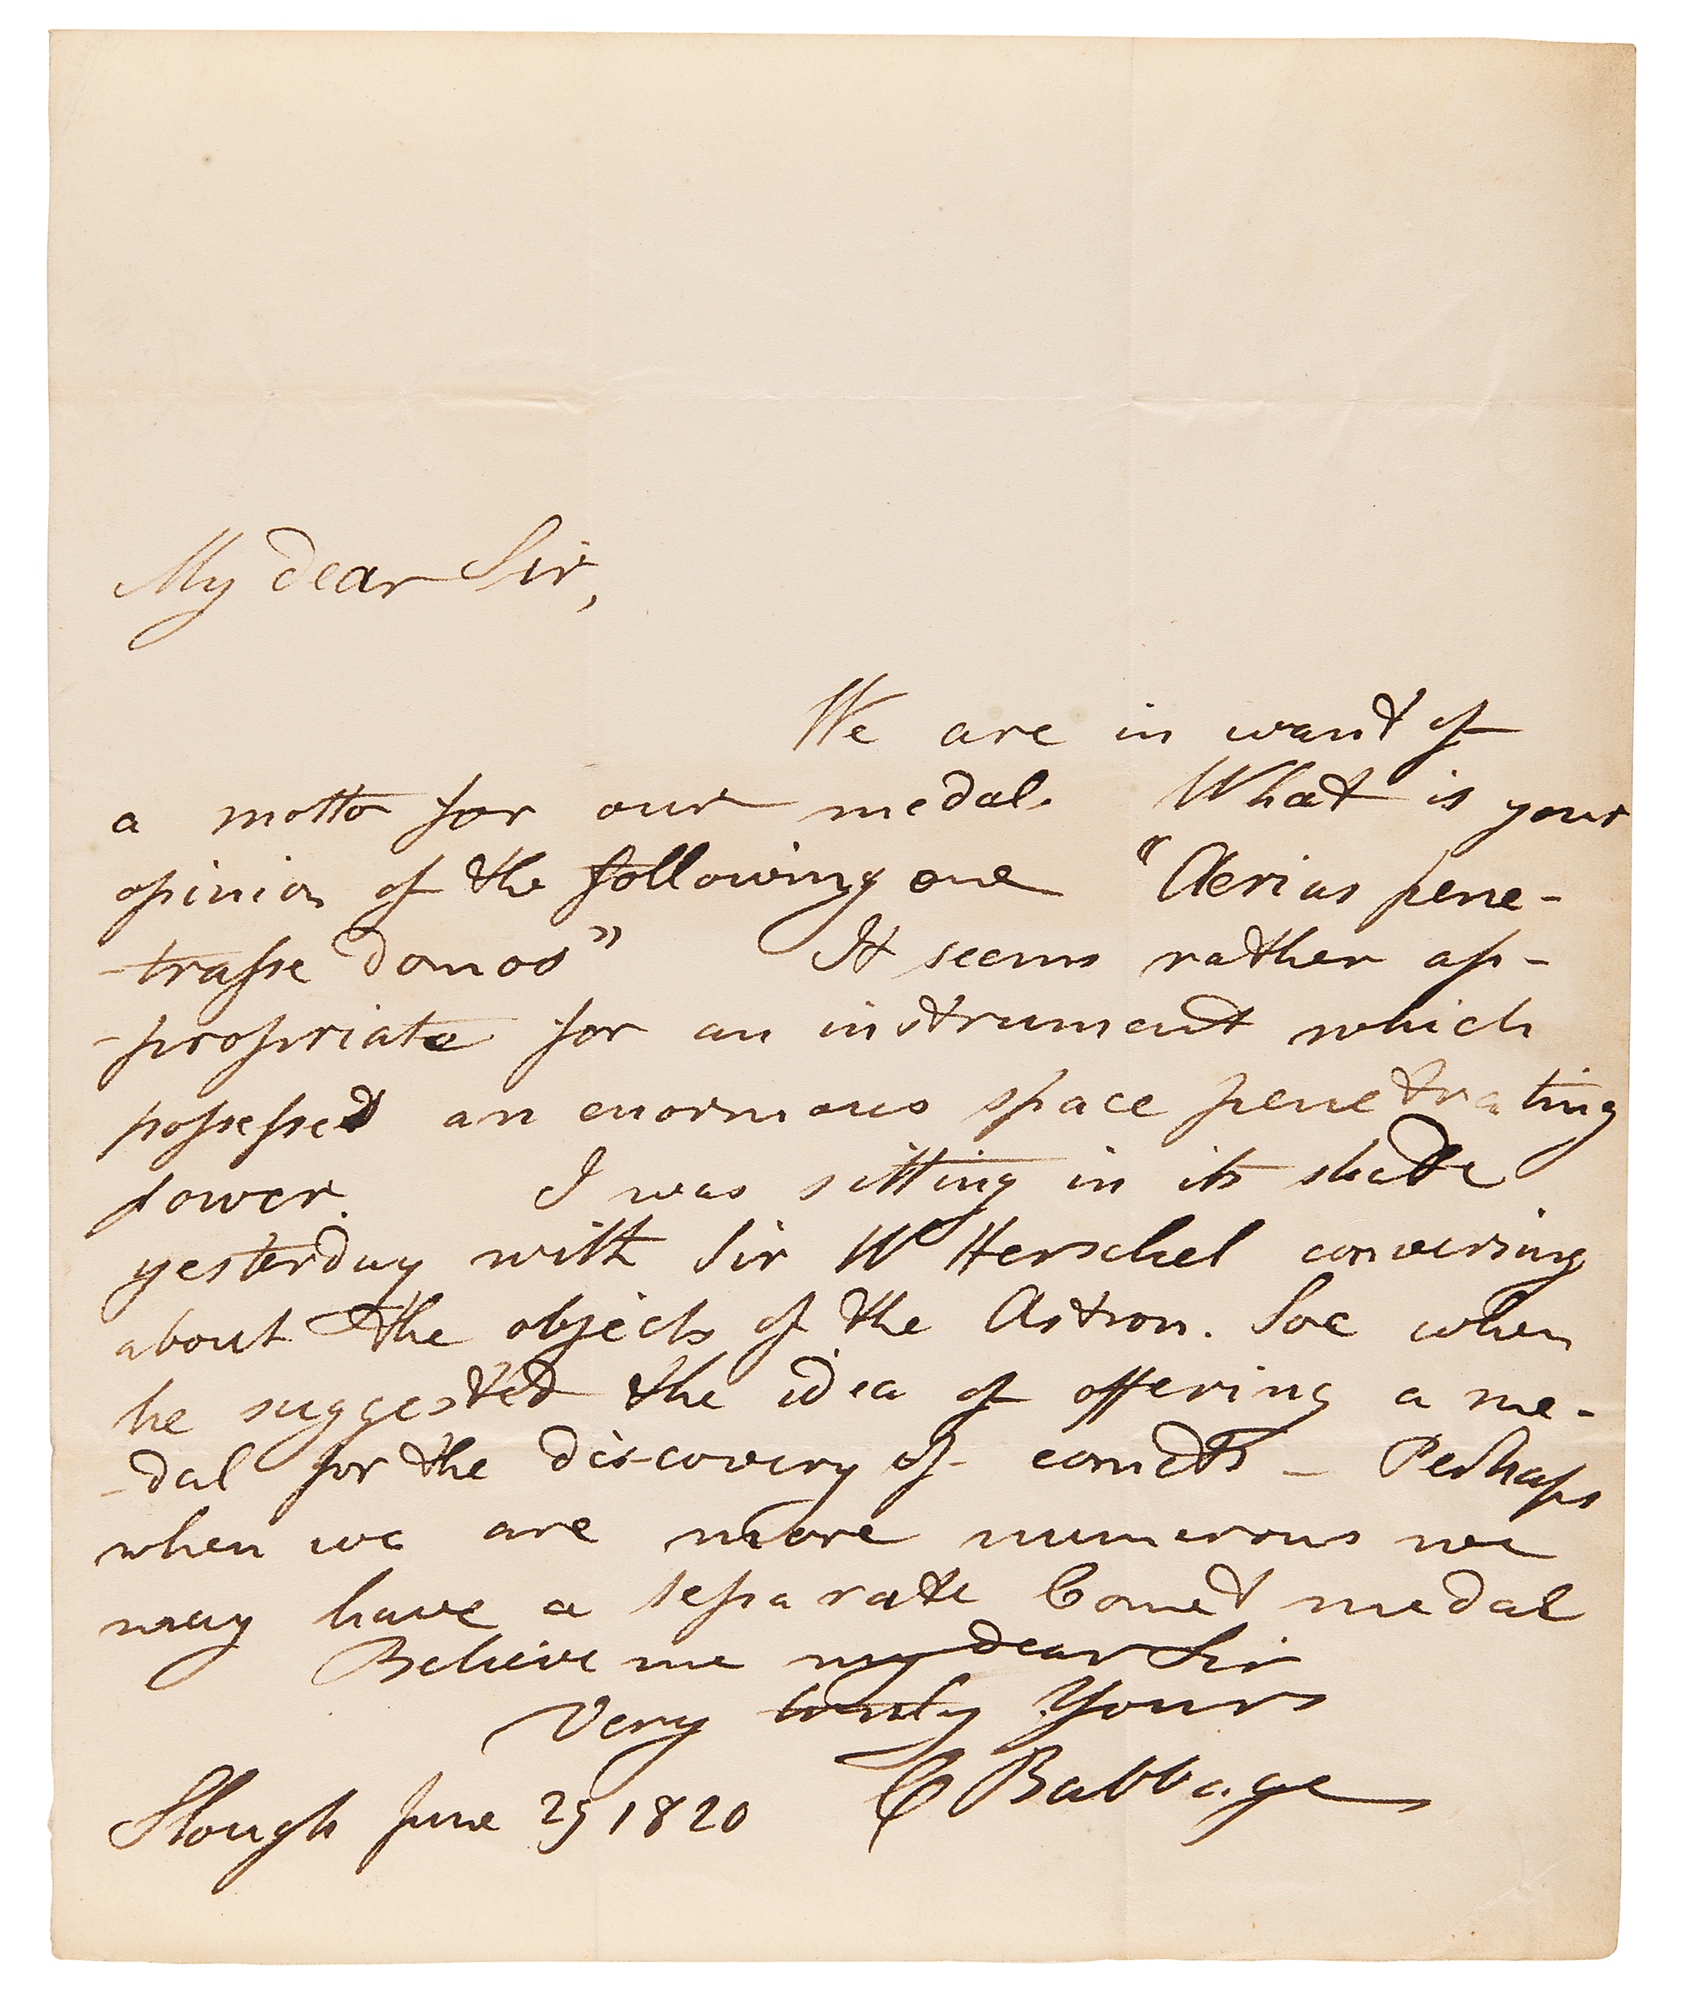 My dear Sir,
We are in want of
a motto for our medal. What is your
opinion of the following one "Aerias pene-
-trasse domos" It seems rather ap-
-propriate for an instrument which
possessed an enormous space penetrating
power. I was sitting in its shade
yesterday with Sir W Herschel conversing
about the objects of the Astron. Soc when
he suggested the idea of offering a me-
-dal for the discovery of comets - Perhaps
when we are more numerous we
may have a separate Comet medal
Believe me my dear Sir
Very truly Yours
Slough June 25 1820 C Babbage